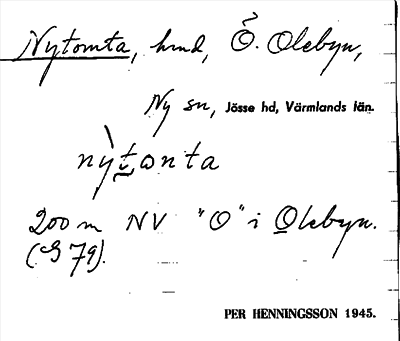 Nytomta, hmd, Ö. Olebyn,
Ny sn, Jösse hd, Värmlands län.
nỳt̰ɷnta
200 m NV "O" i Olebyn.
(G 79).
PER HENNINGSSON 1945.